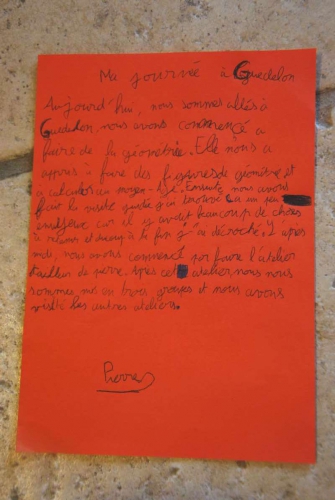 Ma journée à Guedelon
Aujourd'hui, nous sommes allés à
Guedelon, nous avons commencé a
faire de la géométrie. Elle nous a
appris à faire des figures de géométrie et
a calculer au moyen-âge. Ensuite nous avons
fait la visite guidée j'ai trouvé ça un peu
ennuyeux car il y avait beaucoup de choses
à retenir et donc à la fin j'ai décroché. L'après
midi, nous avons commencé par faire l'atelier
tailleur de pierre. Après cet atelier nous nous
sommes mis en trois groupes et nous avons
visité les autres ateliers.
Pierre